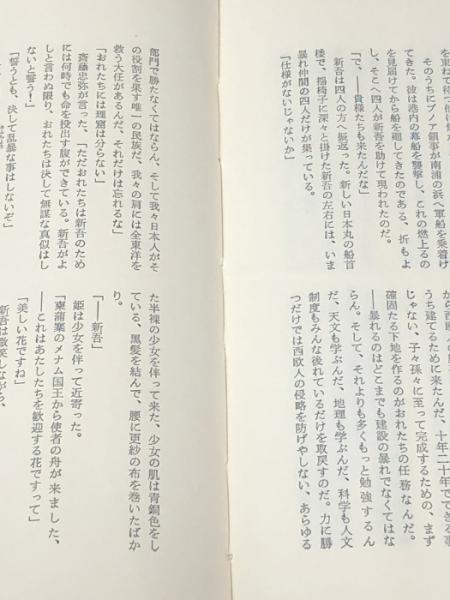 を束ねて待
そのうちにプノア領事が南浦の浜へ軍船を乗着け
てきた。彼は港内の幕船を襲撃し、これの燃上るの
を見届けてから船を廻してきたのである、折もよ
し、そこへ四人が新吾を助けて現われたのだ。
「で、――貴様たちも来たんだな」
新吾は四人の方へ振返った。新しい日本丸の船首
楼で、揺椅子に深々と掛けた新吾の左右には、いま
暴れ仲間の四人だけが集っている。
「仕様がないじゃないか」
から西欧人の
うち建てるために来たんだ、十年二十年でできる事
じゃない、子々孫々に至って完成するための、まず
確固たる下地を作るのがおれたちの任務なんだ。
――暴れるのはどこまでも建設の暴れでなくてはな
らん。そして、それよりも多くもっと勉強するん
だ、天文も学ぶんだ、地理も学ぶんだ、科学も人文
制度もみんな後れているだけを取戻すのだ。力に勝
つだけでは西欧人の侵略を防げやしない、あらゆる
部門で勝たなくてはならん、そして我々日本人がそ
の役割を果す唯一の民族だ、我々の肩には全東洋を
救う大任があるんだ、それだけは忘れるな」
「おれたちには理窟は分らない」
斎藤忠弥が言った、「ただおれたちは新吾のため
には何時でも命を投出す肚ができている。新吾がよ
しと言わぬ限り、おれたちは決して無謀な真似はし
ないと誓う！」
「誓うとも、決して乱暴な事はしないぞ」
た半裸の少女を伴って来た、少女の肌は青銅色をし
ている、黒髪を結んで、腰に更紗の布を巻いたばか
り。
「――新吾」
姫は少女を伴って近寄った。
「柬蒲寨のメナム国王から使者の舟が来ました、
――これはあたしたちを歓迎する花ですって」
「美しい花ですね」
新吾は微笑しながら、